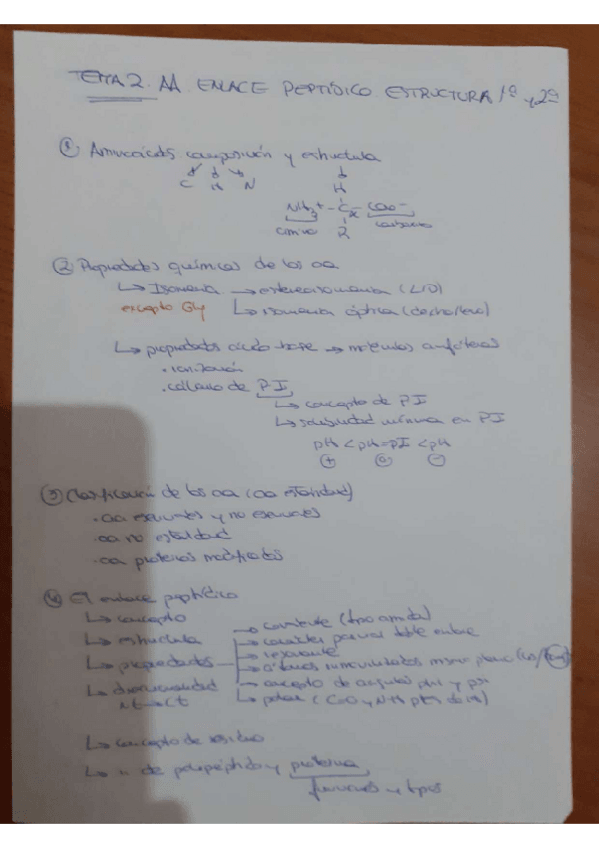 TEMA 2. AA ENLACE PEPTÍDICO ESTRUCTURA 1ª y 2ª
① Aminoácidos composición y estructura
C H N
H
NH3+ - C - COO-
amino carboxilo
② Propiedades químicas de los aa
↳ Isomería → estereoisomería (L/D)
excepto Gly ↳ isomería óptica (dextro/levo)
↳ propiedades ácido-base → moléculas anfóteras
• ionización
• cálculo de PI
↳ concepto de PI
↳ solubilidad mínima en PI
pH < pH=PI < pH
+ 0 -
③ Clasificación de los aa (aa estándar)
• aa esenciales y no esenciales
• aa no estándar
• aa proteicos modificados
④ El enlace peptídico
↳ concepto
↳ estructura
↳ propiedades
↳ direccionalidad
Nt → Ct
covalente (tipo amida)
carácter parcial doble enlace
resonante
átomos inmovilizados mismo plano
concepto de ángulos phi y psi
polar (C=O y NH ptes de H)
↳ concepto de residuo
↳ de polipéptido y proteína
funciones y tipos